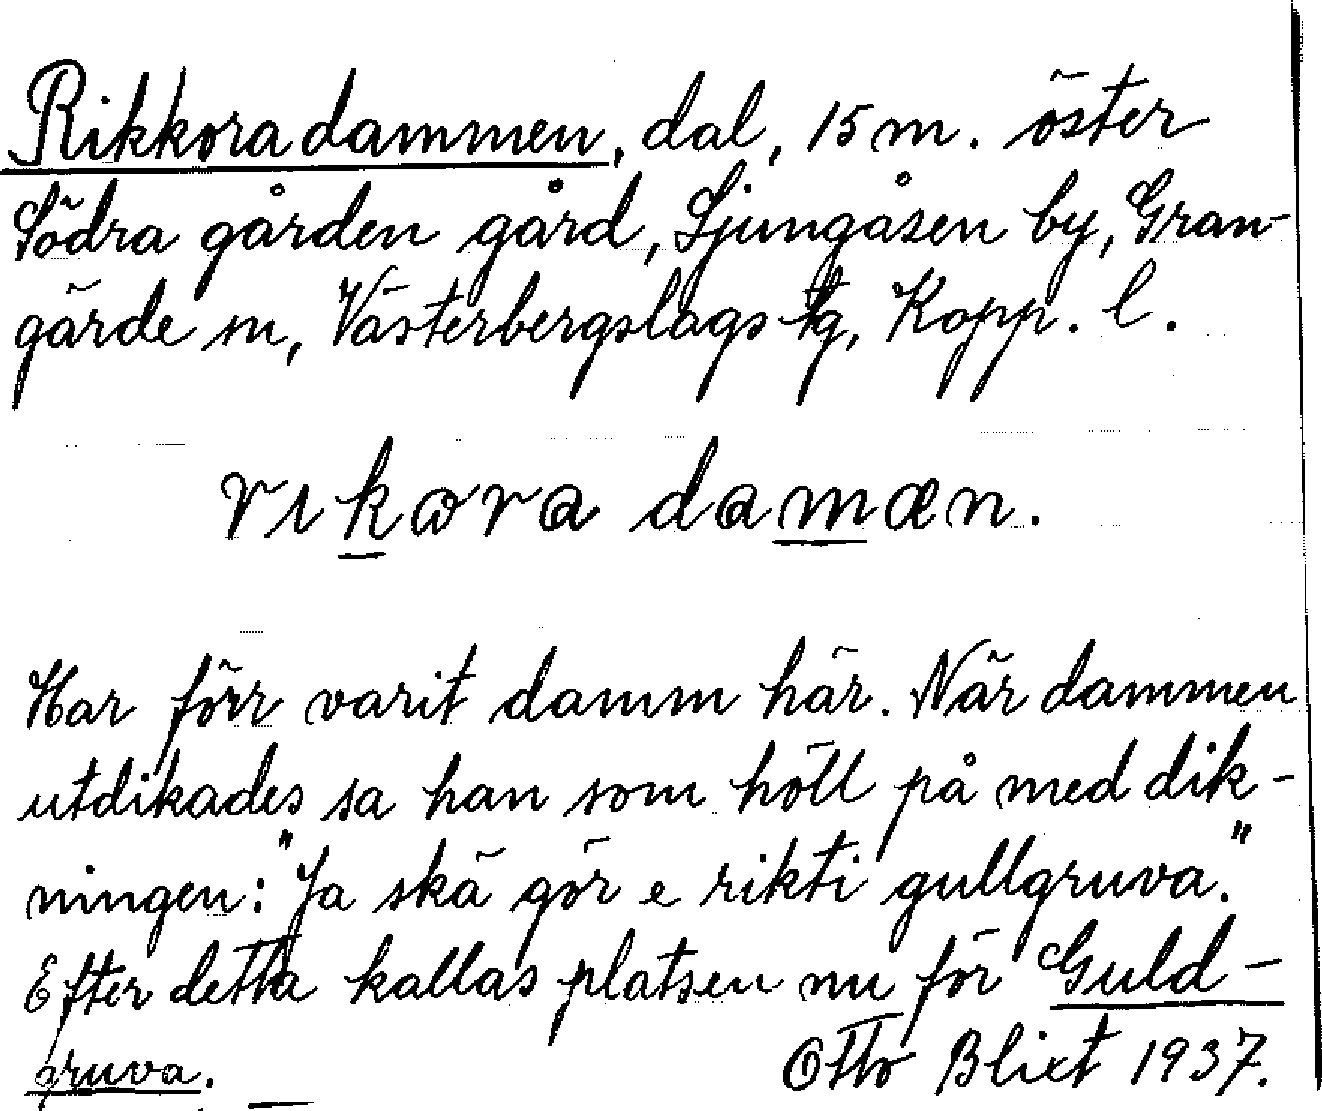 Rikkoradammen, dal, 15 m. öster
Södra gården gård, Ljungåsen by, Gran-
gärde sn, Västerbergslags tg, Kopp. l.
rıkωra damæn.
Har förr varit damm här. När dammen
utdikades sa han som höll på med dik-
ningen: "Ja skä gör e rikti gullgruva."
Efter detta kallas platsen nu för Guld-
gruva.
Otto Blixt 1937.